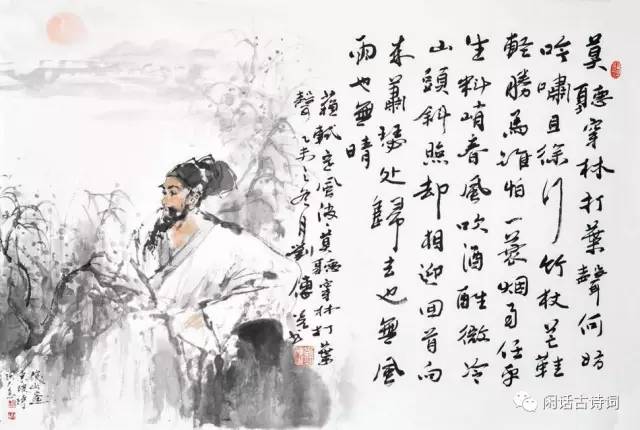 莫聽穿林打葉聲何妨
吟嘯且徐行竹杖芒鞋
輕勝馬誰怕一蓑烟雨任平
生料峭春風吹酒醒微冷
山頭斜照却相迎回首向
来蕭瑟处歸去也無風
雨也無晴
蘇軾定風波·莫聽穿林打葉
聲乙未之冬月劉傳书
闲话古诗词